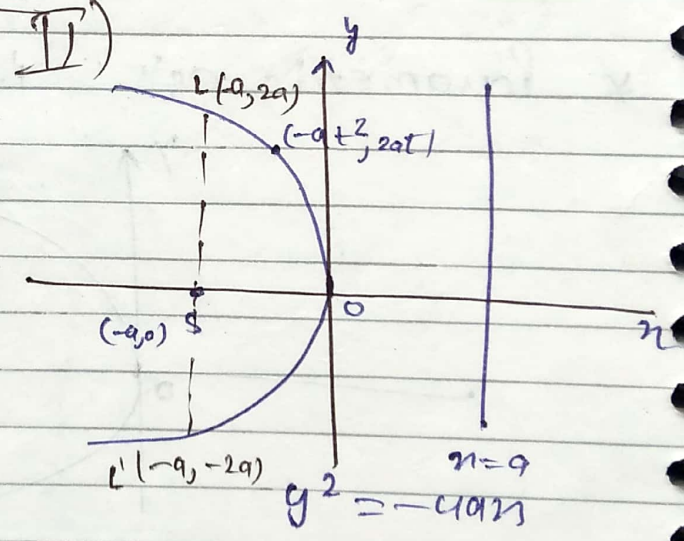 II)
y
L (-a, 2a)
(-at², 2at)
O
(-a,0)
S
x
L' (-a, -2a)
x=a
y² = -4ax